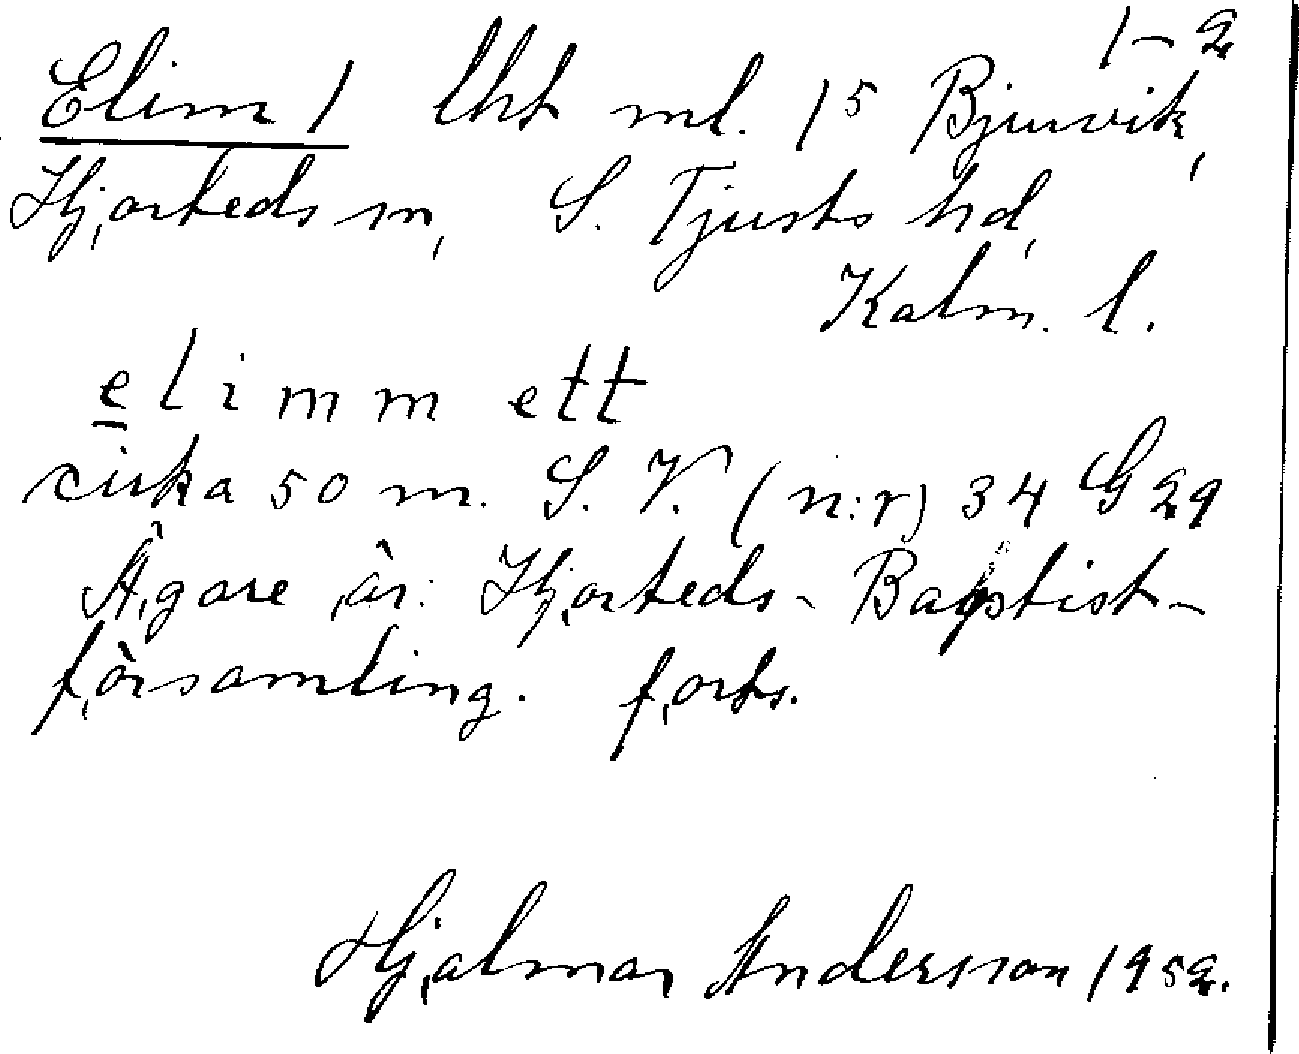 1-2
Elim 1 lht ml. 15 Bjurvik,
Hjorteds sn, S. Tjusts hd,
Kalm. l.
elimm ett
cirka 50 m. S. V. (n:r) 34 G 29
Ägare är: Hjorteds- Baptist-
församling. forts.
Hjalmar Andersson 1952.